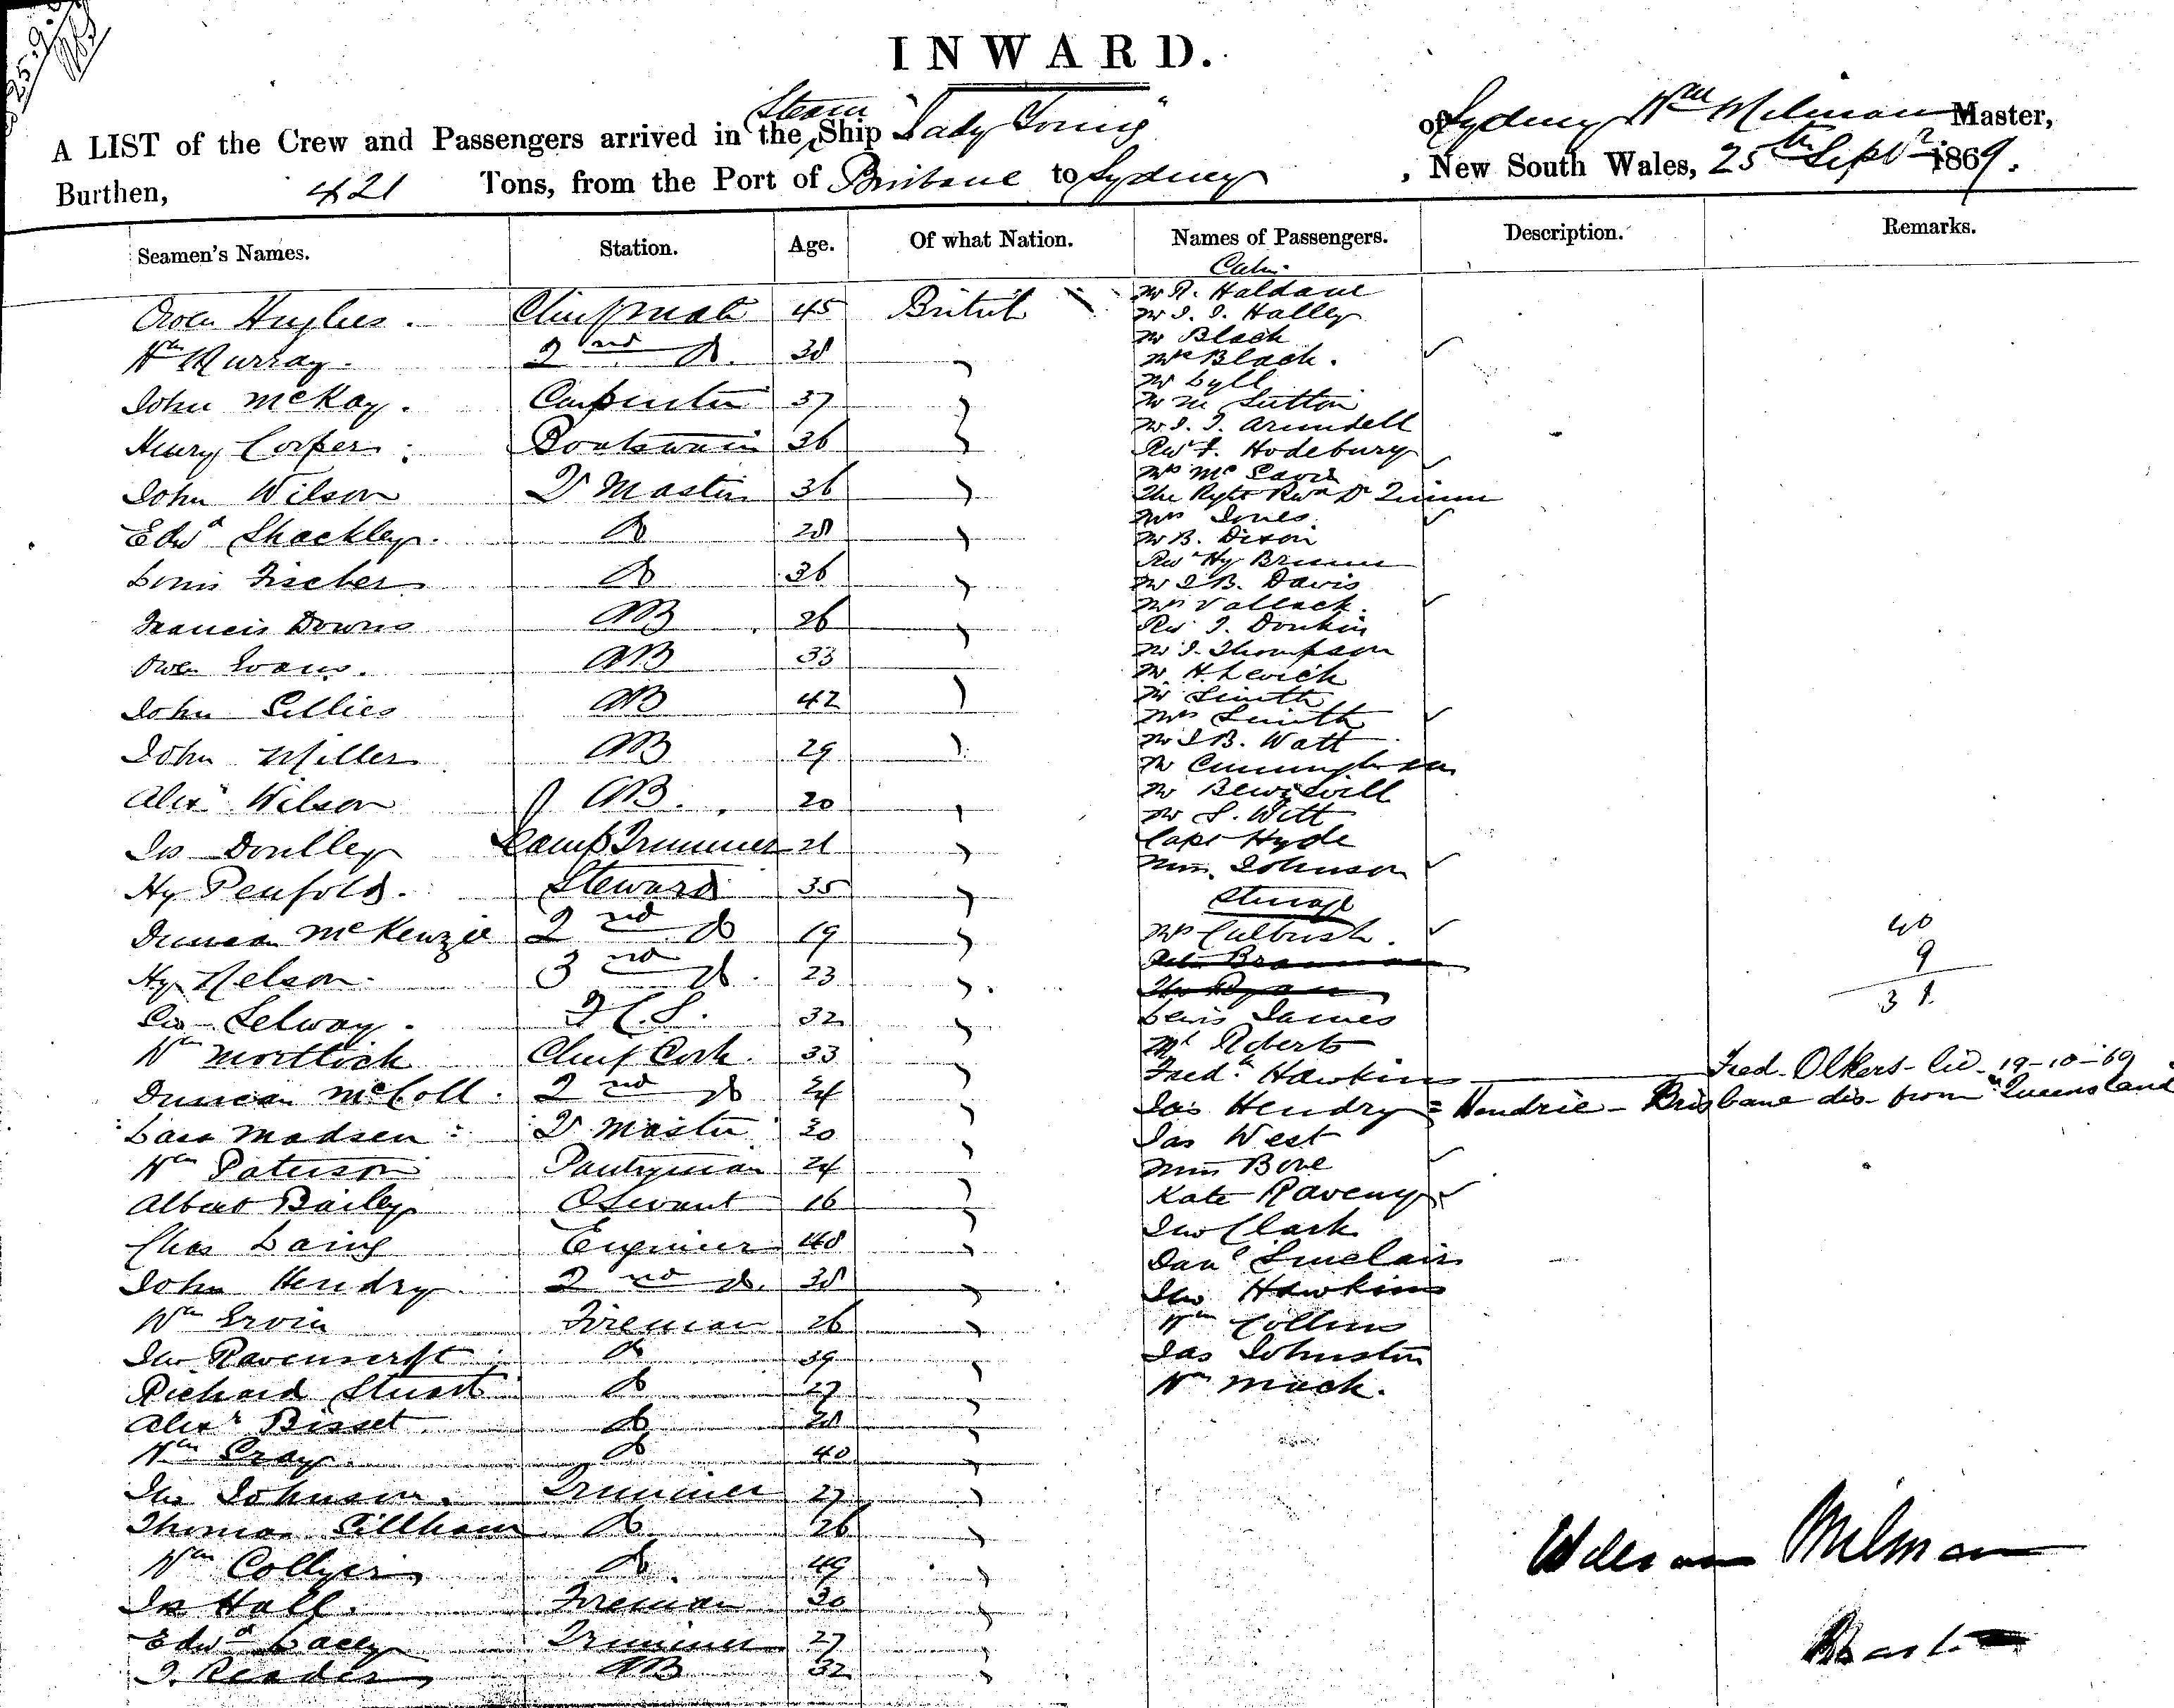 25.9.
INWARD.
A LIST of the Crew and Passengers arrived in the Steam Ship "Lady Young" of Sydney Wm Milman Master,
Burthen, 421 Tons, from the Port of Brisbane to Sydney, New South Wales, 25th Septr 1869.
Seamen's Names. Station. Age. Of what Nation. Names of Passengers. Description. Remarks.
Owen Hughes. Chief mate 45 British
Wm Murray. 2nd Do. 38
John McKay. Carpenter 37
Henry Cooper. Boatswain 36
John Wilson Q Master 36
Edwd Shackley. Do 28
Louis Fischer Do 36
Francis Downs AB 26
Owen Evans. AB 33
John Gillies AB 42
John Miller AB 29
Alexr Wilson AB. 20
Jas Doulley Lamp Trimmer 21
Hy Penfold. Steward 35
Duncan McKenzie 2nd Do 19
Hy Nelson. 3rd Do. 23
Geo Selway. F.C.S. 32
Wm Mortlock Chief Cook. 33
Duncan McColl. 2nd Do 24
Lars Madsen Q Master 30
Wm Paterson Pantryman 24
Albert Bailey OServant 16
Chas Laing Engineer 48
John Hendry 2nd Do. 38
Wm Ervin Fireman 26
Jno Ravenscroft Do 39
Richard Stuart Do 27
Alexr Bisset Do 28
Wm Gray. Do 40
Jno Johnson. Trimmer 27
Thomas Gillham Do 26
Wm Collyer Do. 49
Jas Hall. Fireman 30
Edwd Lacey Trimmer 27
J. Reader AB 32
Cabin
Mr R. Haldane
Mr J. J. Halley
Mr Black
Mrs Black.
Mr Lyll
Mr M Sutton
Mr J. J. Arundell
Revd F. Hodebury
Mrs McDavid
The Right Revd Dr Quinn
Mrs Jones.
Mr B. Dixon
Revd Hy Brunn
Mr J B. Davis
Mrs Vallack.
Revd J. Donkin
Mr J. Thompson
Mr H. Levick
Mr Smith
Mrs Smith
Mr J B. Watt
Mr Cunningham
Mr
Mr S. Witt
Capt Hyde
Miss Johnson
Steerage
Mrs Culbush.
Ryan
Lewis James
Roberts
Fredk Hawkins Fred. Olkers - lic. 19-10-69
Jas Hendry = Hendrie - Brisbane dis. from "Queensland
Jas West
Miss Bore
Kate Raveny
Jno Clark
Danl Sinclair
Jno Hawkins
Wm Collins
Jas Johnston
Wm Mack.
40
9
31.
William Milman
Master